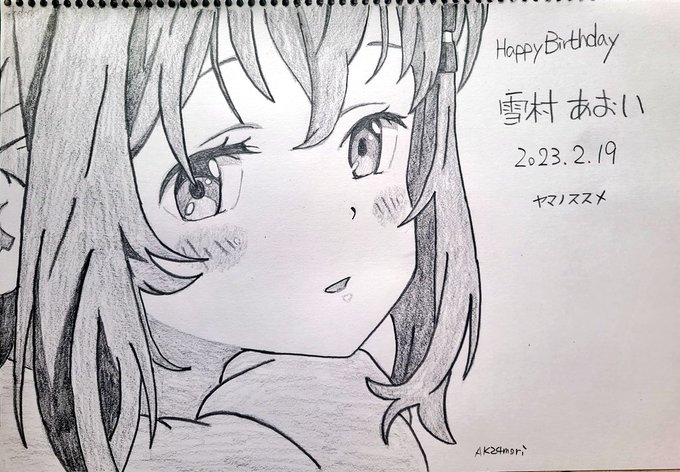 Happy Birthday
雪村 あおい
2023.2.19
ヤマノススメ
AK24mori